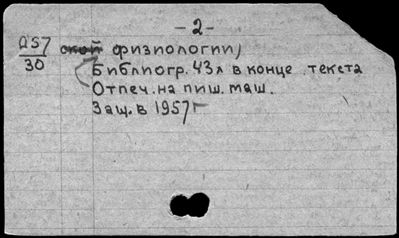 - 2 -
Д57
30
ской физиологии)
Библиогр. 43л в конце текста
Отпеч. на пиш. маш.
Защ. в 1957г